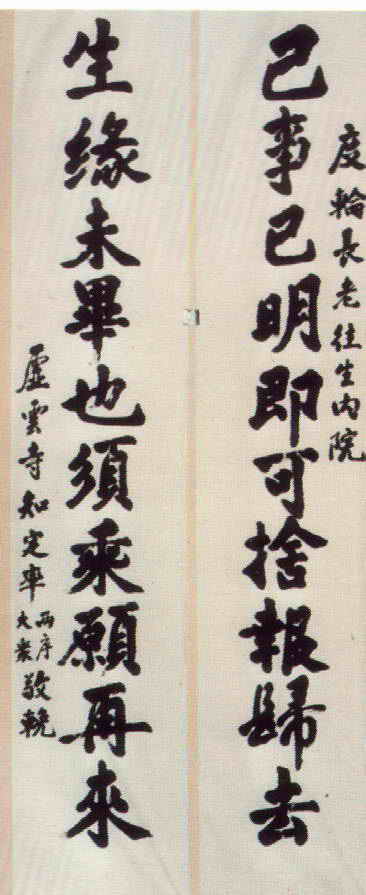 度輪長老往生內院
己事已明即可捨報歸去
生緣未畢也須乘願再來
虛雲寺知定率兩序大眾敬輓